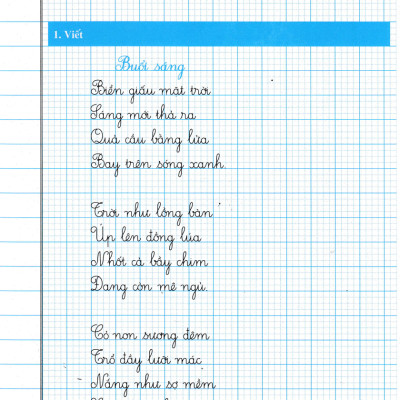 1. Viết
Buổi sáng
Biển giấu mặt trời
Sáng mới thả ra
Quả cầu bằng lửa
Bay trên sóng xanh.
Trời như lồng bàn
Úp lên đồng lúa
Nhốt cả bầy chim
Đang còn mê ngủ.
Cỏ non sương đêm
Trổ đầy lưỡi mác
Nắng như sợi mềm